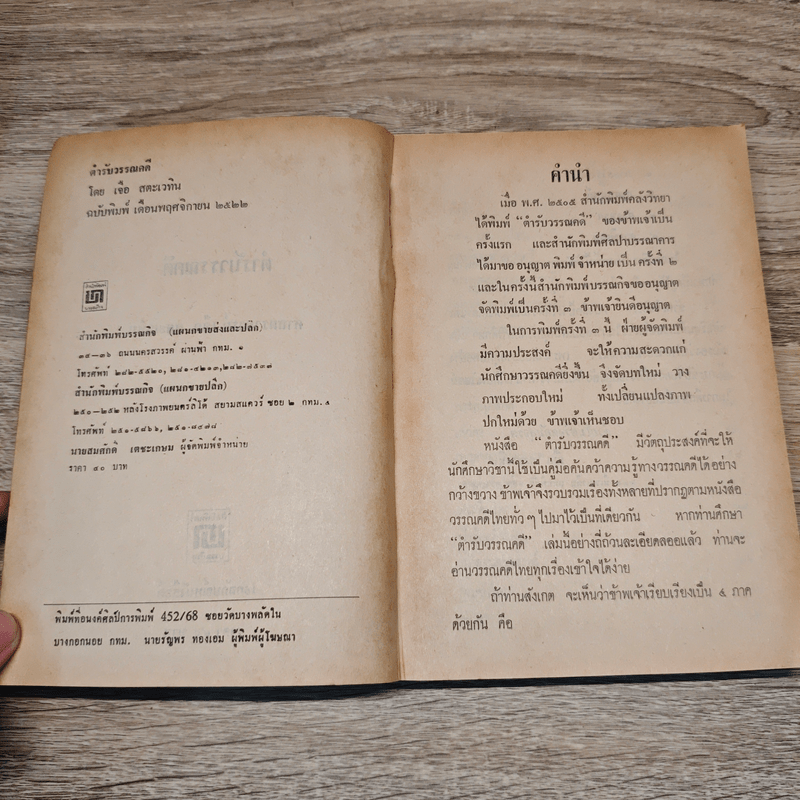 ตำรับวรรณคดี
โดย เจือ สตะเวทิน
ฉบับพิมพ์ เดือนพฤศจิกายน ๒๕๒๒
สำนักพิมพ์บรรณกิจ (แผนกขายส่งและปลีก)
๓๔–๓๖ ถนนนครสวรรค์ ผ่านฟ้า กทม. ๑
โทรศัพท์ ๒๘๒-๕๕๒๐, ๒๘๑-๔๒๑๓, ๒๘๒-๗๕๓๗
สำนักพิมพ์บรรณกิจ (แผนกขายปลีก)
๒๕๐–๒๕๒ หลังโรงภาพยนตร์ลิโด้ สยามสแควร์ ซอย ๒ กทม. ๕
โทรศัพท์ ๒๕๑-๕๘๖๖, ๒๕๑-๘๔๗๘
นายสมศักดิ์ เตชะเกษม ผู้จัดพิมพ์จำหน่าย
ราคา ๔๐ บาท
พิมพ์ที่อนงค์ศิลป์การพิมพ์ 452/68 ซอยวัดบางพลัดใน
บางกอกน้อย กทม. นายธัญพร ทองเอม ผู้พิมพ์ผู้โฆษณา
คำนำ
เมื่อ พ.ศ. ๒๕๐๕ สำนักพิมพ์คลังวิทยา
ได้พิมพ์ “ตำรับวรรณคดี” ของข้าพเจ้าเป็น
ครั้งแรก และสำนักพิมพ์ศิลปาบรรณาคาร
ได้มาขอ อนุญาต พิมพ์ จำหน่าย เป็น ครั้งที่ ๒
และในครั้งนี้สำนักพิมพ์บรรณกิจขออนุญาต
จัดพิมพ์เป็นครั้งที่ ๓ ข้าพเจ้ายินดีอนุญาต
ในการพิมพ์ครั้งที่ ๓ นี้ ฝ่ายผู้จัดพิมพ์
มีความประสงค์ จะให้ความสะดวกแก่
นักศึกษาวรรณคดียิ่งขึ้น จึงจัดบทใหม่ วาง
ภาพประกอบใหม่ ทั้งเปลี่ยนแปลงภาพ
ปกใหม่ด้วย ข้าพเจ้าเห็นชอบ
หนังสือ “ตำรับวรรณคดี” มีวัตถุประสงค์ที่จะให้
นักศึกษาวิชานี้ใช้เป็นคู่มือค้นคว้าความรู้ทางวรรณคดีได้อย่าง
กว้างขวาง ข้าพเจ้าจึงรวบรวมเรื่องทั้งหลายที่ปรากฏตามหนังสือ
วรรณคดีไทยทั่ว ๆ ไปมาไว้เป็นที่เดียวกัน หากท่านศึกษา
“ตำรับวรรณคดี” เล่มนี้อย่างถี่ถ้วนละเอียดลออแล้ว ท่านจะ
อ่านวรรณคดีไทยทุกเรื่องเข้าใจได้ง่าย
ถ้าท่านสังเกต จะเห็นว่าข้าพเจ้าเรียบเรียงเป็น ๕ ภาค
ด้วยกัน คือ